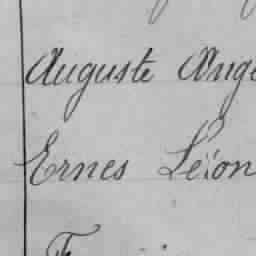 Auguste Ange
Ernes Léon